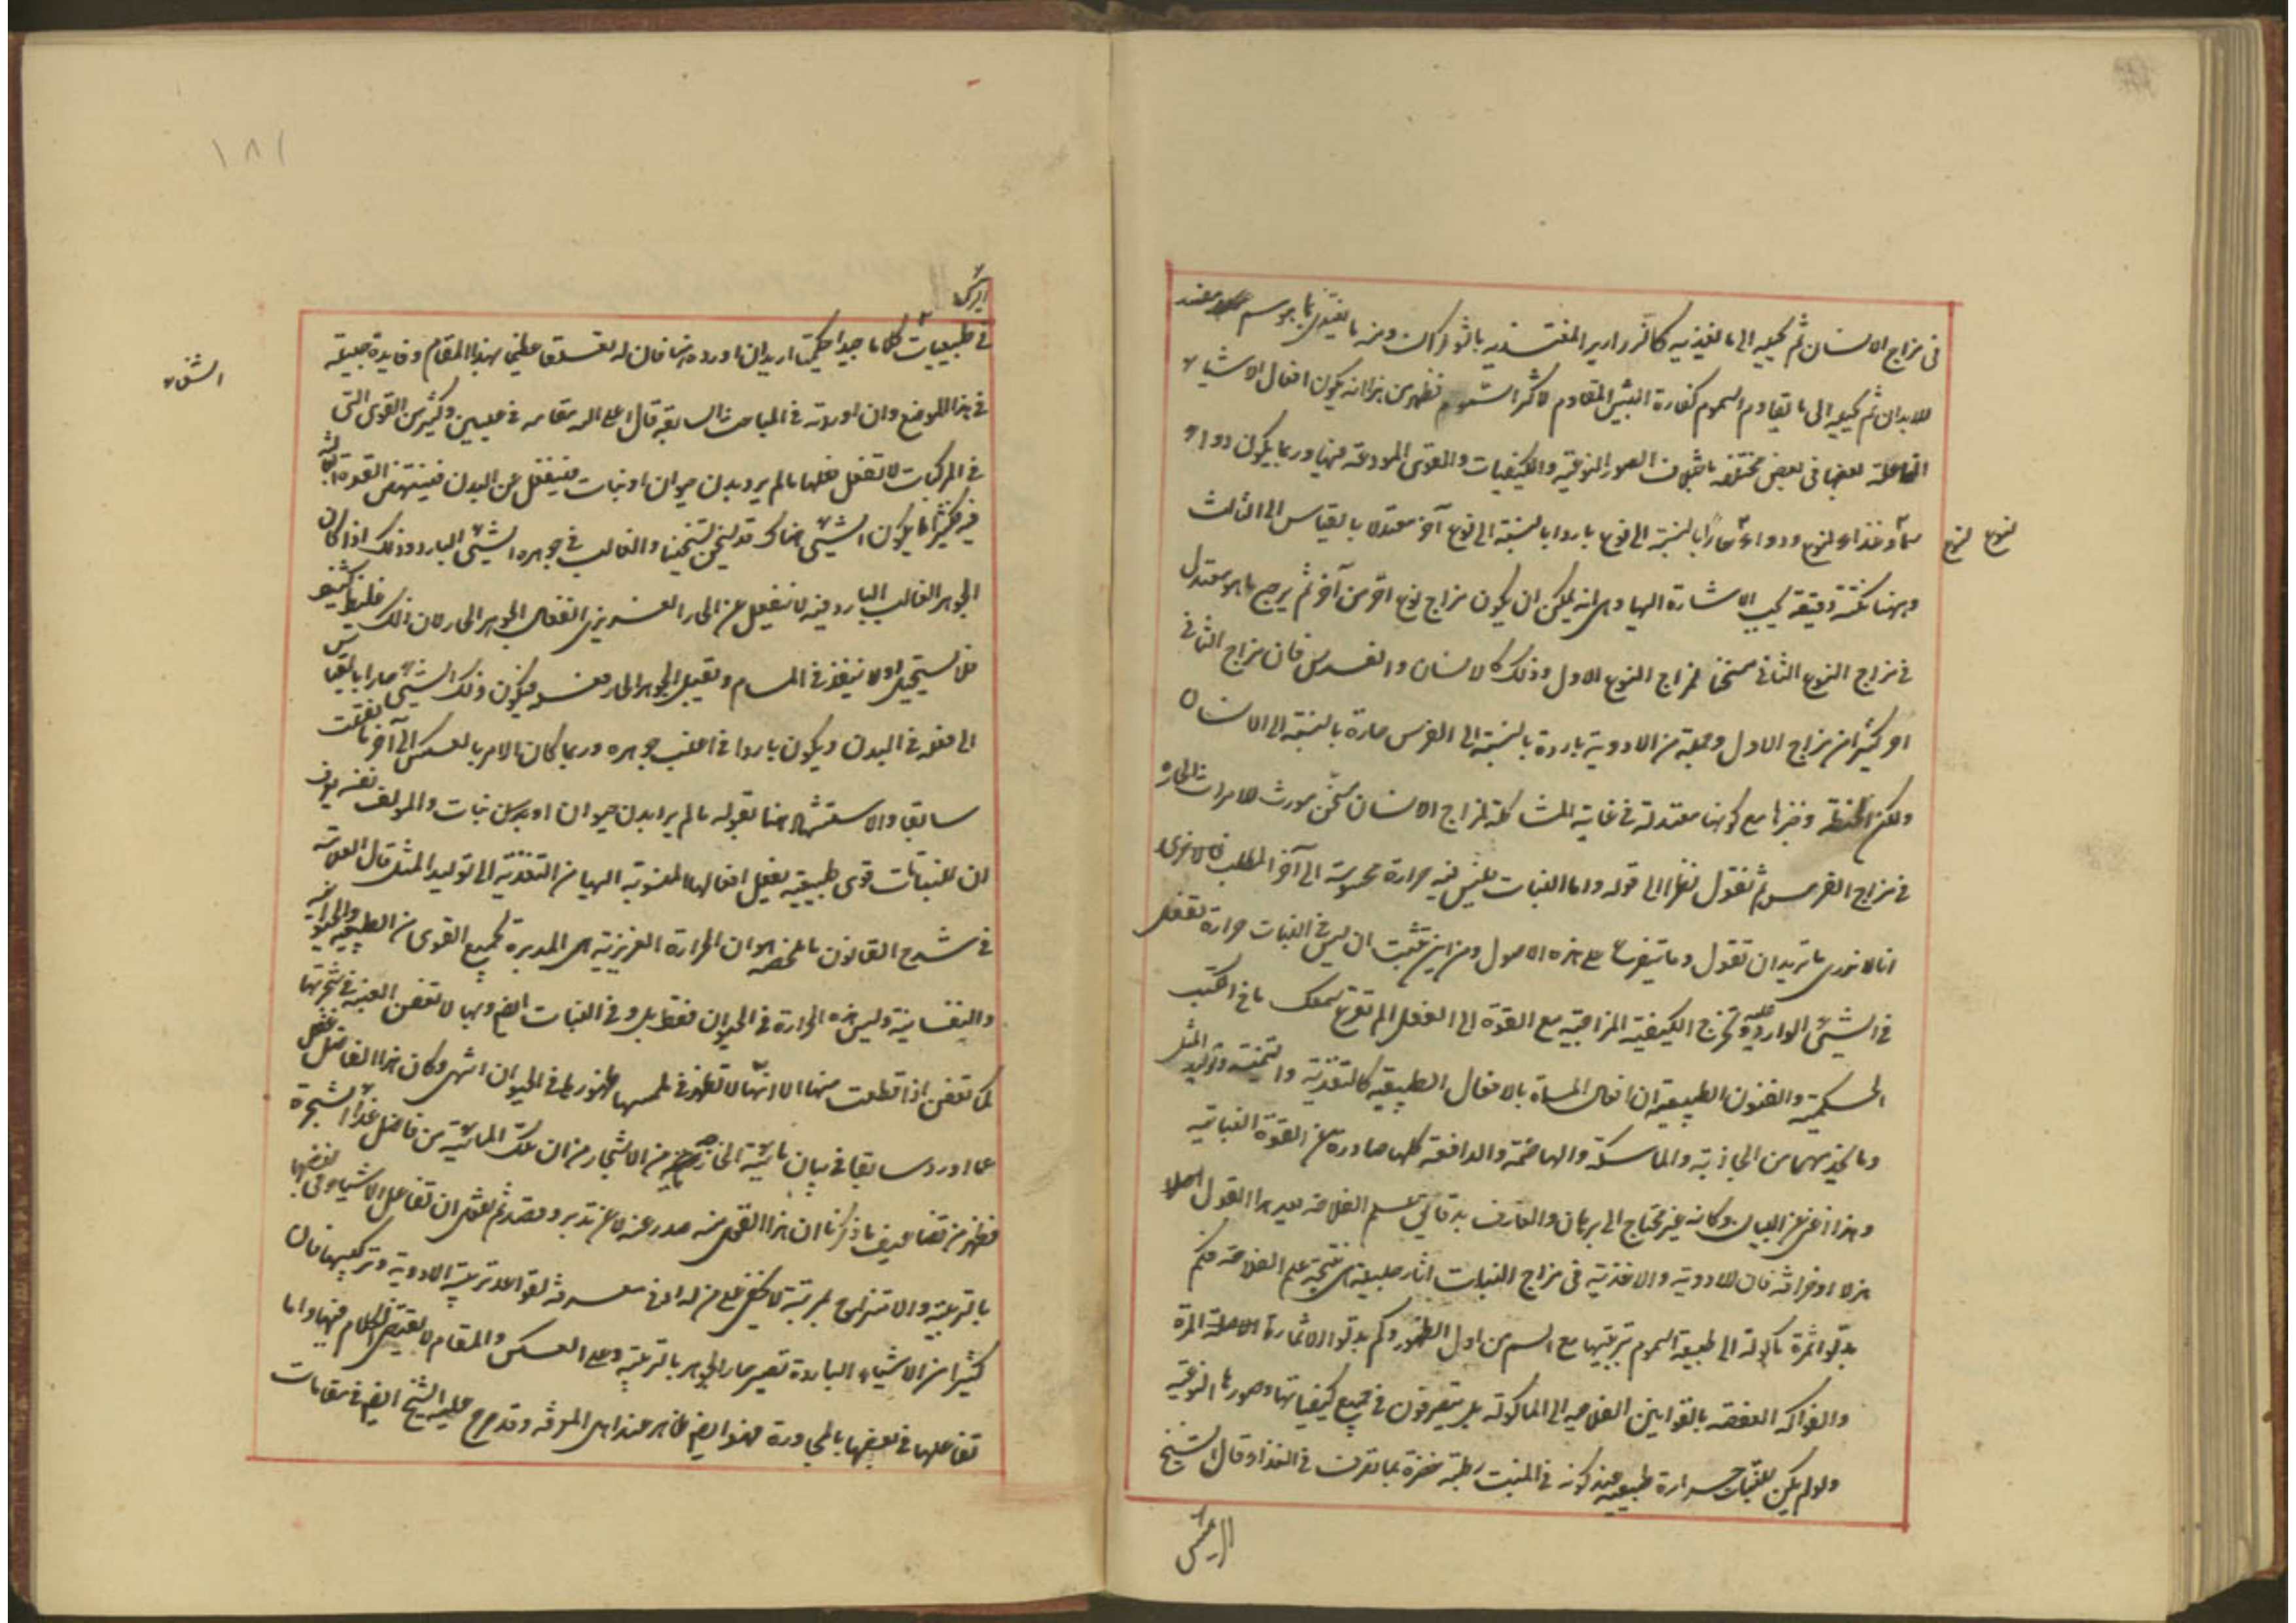 فى مزاج الانسان ثم يحيله الى ما يغذيه كالزرازير المغتذيه بالشوكران ومنه ما يغتذى بما هو سم مفسد
للابدان ثم يحيله الى ما يقاوم السموم كفارة البيش المقاوم لاكثر السموم فظهر من هذا انه يكون افعال الاشياء
الفاعلة بعضها فى بعض مختلفه باختلاف الصور النوعية والكيفيات والقوى المودعة فيها وربما يكون دواء
سما وغذاء لنوع ودواء حارا بالنسبة الى نوع باردا بالنسبة الى نوع آخر معتدلا بالقياس الى الثالث
لنوع لنوع
وههنا نكتة دقيقة يجب الاشارة اليها وهى انه يمكن ان يكون مزاج نوع احر من آخر ثم يرجع ما هو معتدل
فى مزاج النوع الثانى مسخنا لمزاج النوع الاول وذلك كالانسان والفرس فان مزاج الثانى
احر كثيرا من مزاج الاول وجملة من الادوية باردة بالنسبة الى الفرس حارة بالنسبة الى الانسان
ولكن الحنطة وخبزها مع كونها معتدلة فى غاية المشاكلة لمزاج الانسان مسخن مورث للامراض الحاره
فى مزاج الفرس ثم نقول نظرا الى قوله واما النبات فليس فيه حرارة محسوسة الى آخر المطلب
انا لا ندرى ما تريد ان تقول وما يتفرع على هذه الاصول ومن اين تثبت ان ليس فى النبات حرارة تفعل
فى الشئ الوارد عليه وتخرج الكيفية المزاجية مع القوة الى الفعل الم تقرع سمعك ما فى الكتب
الحكمية والفنون الطبيعية ان افعال المسماة بالافعال الطبيعيه كالتغذية والتنمية وتوليد المثل
وما يخدمهما من الجاذبة والماسكة والهاضمة والدافعة كلها صادرة عن القوة النباتيه
وهذا غنى عن البيان وكانه غير محتاج الى برهان والعارف بدقائق علم الفلاحه هذا القول اصلا
فان للادوية والاغذية فى مزاج النبات اثار طبيعية نتيجة علم الفلاحه فكم
بدلوا ثمرة ماكولة الى طبيعة السموم بتربيتها مع السم من اول الظهور وكم بدلوا الاثمار المرة
والفواكه العفصه بالقوانين الفلاحيه الى الماكولة بل يتصرفون فى جميع كيفياتها وصورها النوعيه
ولو لم يكن للنبات حرارة طبيعيه عند كونه فى المنبت رطبة خضرة بما تصرف فى الغذا وقال الشيخ
الرئيس
١٨١
الرئيس
فى طبيعيات الشفاء كلاما جيدا حكيميا اريد ان اورده هنا فان له تعلقا عظيما بهذا المقام وفايدة جميلة
الشفاء
فى هذا الموضع وان اوردته فى المباحث السابقه قال اعلى الله مقامه فى عليين وكثير من القوى التى
فى المركبات لا تفعل فعلها ما لم يرد بدن حيوان او نبات فينفعل عن البدن فينتهض القوة
فيه فكثيرا ما يكون الشئ هناك قد يسخن تسخينا والغالب فى جوهره الشئ البارد وذلك اذا كان
الجوهر الغالب البارد فيه لا ينفعل عن الحار الغريزى انفعال الجوهر الحار لان ذلك غليظ كثيف
فلا يستحيل ولا ينفذ فى المسام ويقبل الجوهر الحار فيكون ذلك الشئ حارا بالقياس
الى فعله فى البدن ويكون باردا فى اغلب جوهره وربما كان الامر بالعكس الى آخر ما نقلت
سابقا والاستشهاد هنا بقوله ما لم يرد بدن حيوان او بدن نبات والمولف
ان للنباتات قوى طبيعيه تفعل افعالها المنسوبة اليها من التغذية الى توليد المثل قال العلامة
فى شرح القانون ما ملخصه هو ان الحرارة الغريزية هى المدبرة لجميع القوى من الطبيعيه والحيوانيه
والنفسانية وليس هذه الحرارة فى الحيوان فقط بل وفى النبات ايضا وبها لا تعفن العنبه فى شجرتها
كما تعفن اذا قطعت منها الا انها لا تظهر فى ملمسها ظهورها فى الحيوان انتهى وكان هذا الفاضل غفل
عما اورد سابقا فى بيان مائية الخارجة من الاشجار من ان تلك المائية من فاضل غذاء الشجرة
فظهر من تضاعيف ما ذكرنا ان هذا القول منه صدر عنه لا عن تدبر وقصد ثم نقول ان تفاعل الاشياء فى بعضها
بالتربية والامتزاج لمرتبة لا يخفى على من له ادنى معرفة لقواعد تربية الادوية وتركيبها فان
كثيرا من الاشياء الباردة تصير حار الجوهر بالتربية وعلى العكس والمقام لا يقتضى الكلام فيها واما
تفاعلها فى بعضها بالمجاورة فهو ايضا ظاهر عند اهل المعرفة وقد صرح عليه الشيخ ايضا فى مقامات